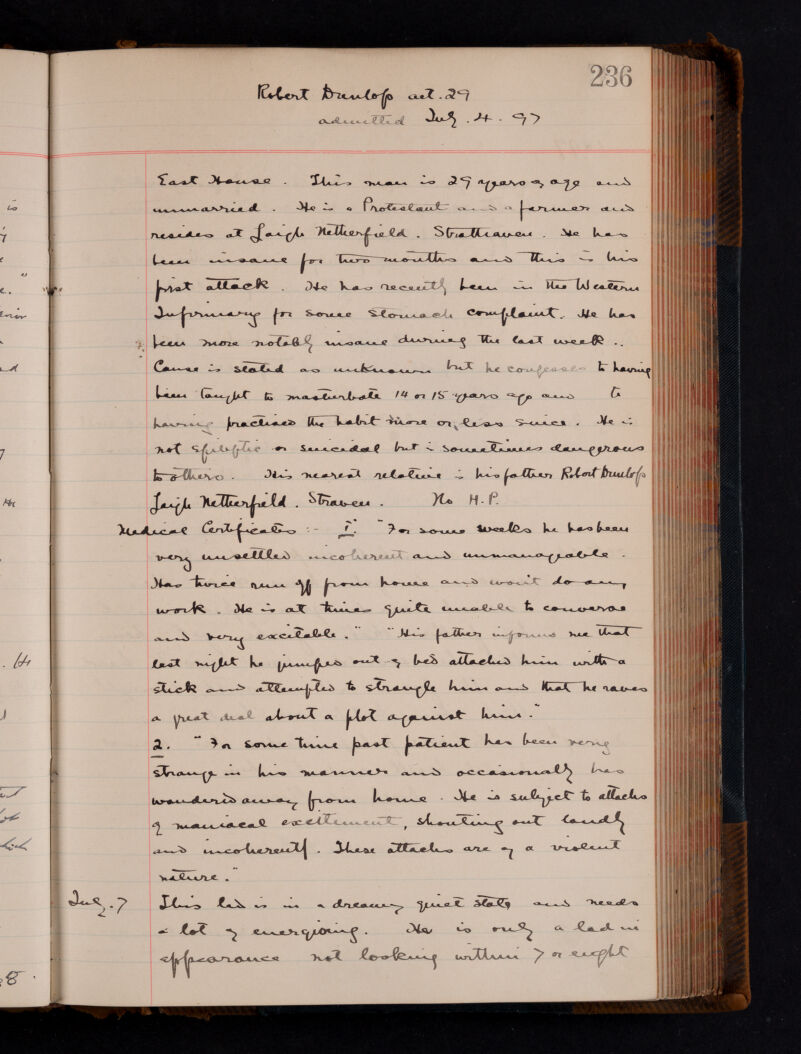 236
Robert Dunlop aet. 29
admitted July. 4. 97
East House. This man is 29 years of age and
unmarried. He is a Protestant and a farmer and
resides at Laigh Netherfield. Strathaven. He has
been insane for two months and this is his
first attack. He has recently been in the Western
Infirmary for some stomach complaint. He has
been more notably insane during the last week..
Cause is stated as unknown but he confesses to having
been taught to masturbate 14 or 15 years ago and to
having practised the habit more or less since. He is
not epileptic or suicidal but is sometimes dangerous
to others. His nearest relative is his father Robert Dunlop
Laigh Netherfield. Straven. No H.P.
Medical Certificates :- 1. "For some weeks he has been
very unsettled incoherent and unmanageable.
Has twice run off from house and won't do any
work. He is at times quite unable to converse
and very excitable." "His father informs me that
last night he jumped out of bed attacked him with a
stick and attempted to strangle him and that he raves
a great deal about a plot against him."
2. "For some time past patient has been very
strange in his manner and occasionally has
wandered away from home. He is subject to attacks
of maniacal excitement, shouting out loudly
and incoherently. These attacks are of a violent
nature."
July. 7 This lad is in a dreamy quiet state and needs
a lot of energising. He is only a lad in
appearance not looking within 7 or eight